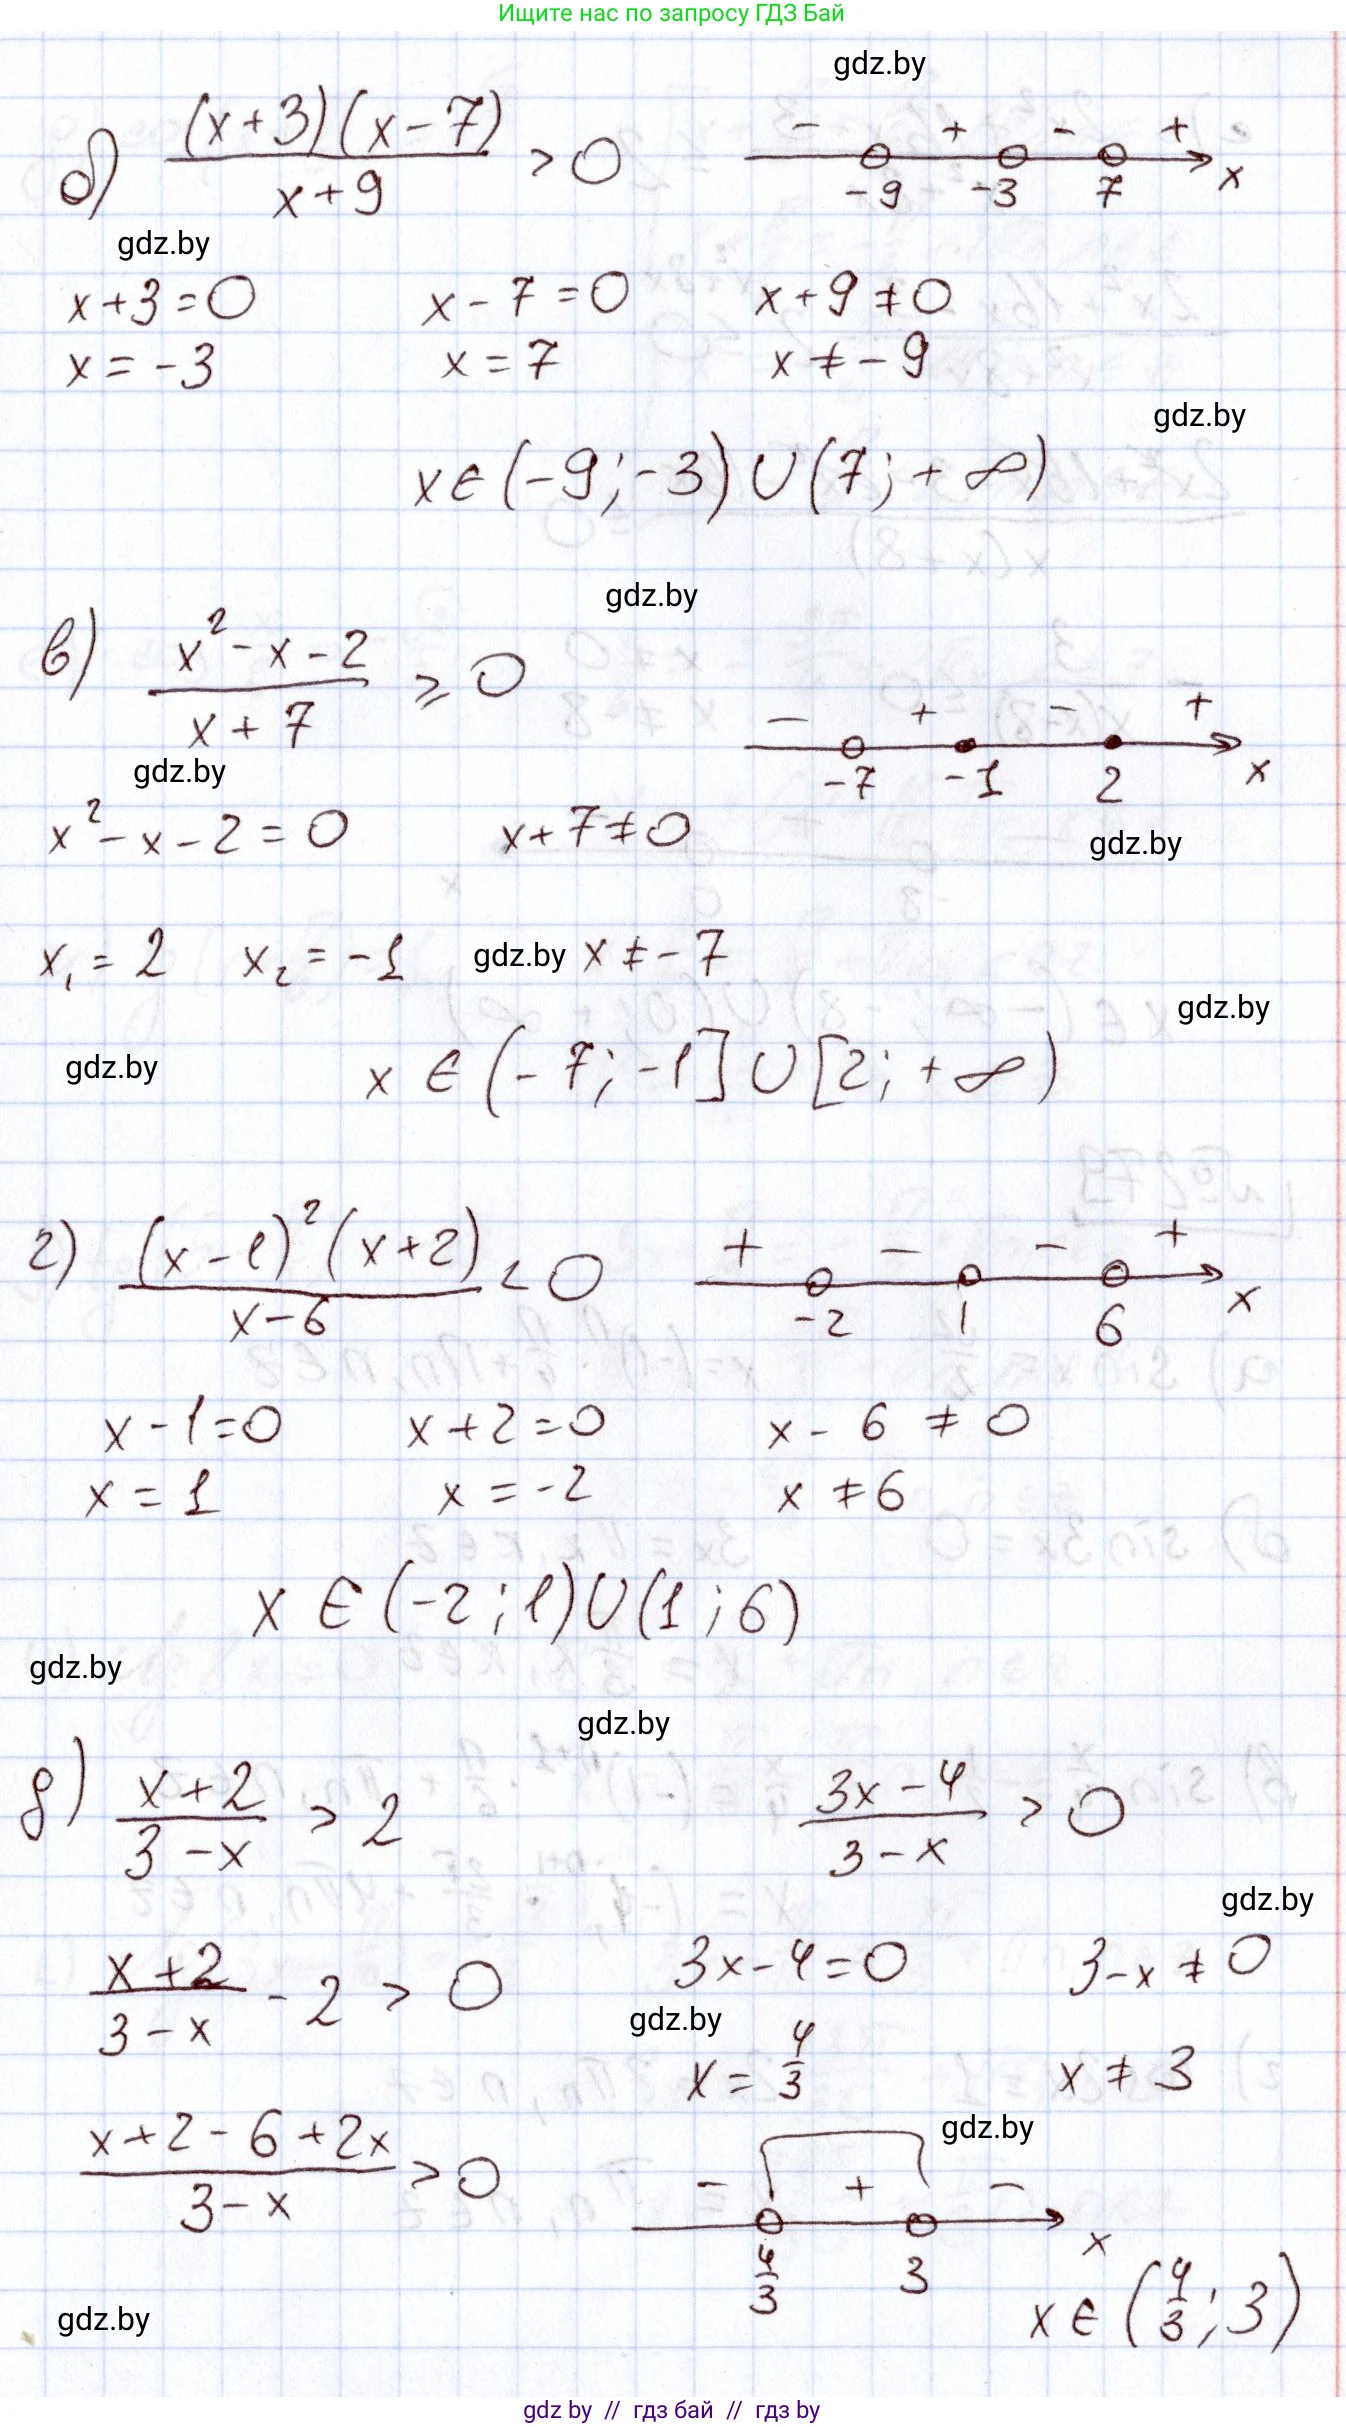 Ищите нас по запросу ГДЗ Бай
gdz.by
б) (x+3)(x-7) / x+9 > 0
- + - +
-9 -3 7 x
gdz.by
x+3=0 x-7=0 x+9≠0
x=-3 x=7 x≠-9
gdz.by
x∈(-9;-3)∪(7;+∞)
gdz.by
в) x²-x-2 / x+7 ≥ 0
- + - +
-7 -1 2 x
gdz.by
x²-x-2=0 x+7≠0
gdz.by
x₁=2 x₂=-1 gdz.by x≠-7
gdz.by
gdz.by
x∈(-7;-1]∪[2;+∞)
г) (x-1)²(x+2) / x-6 < 0
+ - - +
-2 1 6 x
x-1=0 x+2=0 x-6≠0
x=1 x=-2 x≠6
x∈(-2;1)∪(1;6)
gdz.by
gdz.by
д) x+2 / 3-x > 2 3x-4 / 3-x > 0
gdz.by
x+2 / 3-x - 2 > 0 3x-4=0 3-x≠0
gdz.by
x=4/3 x≠3
gdz.by
x+2-6+2x / 3-x > 0
- + -
4/3 3 x
x∈(4/3;3)
gdz.by
gdz by // гдз бай // гдз by